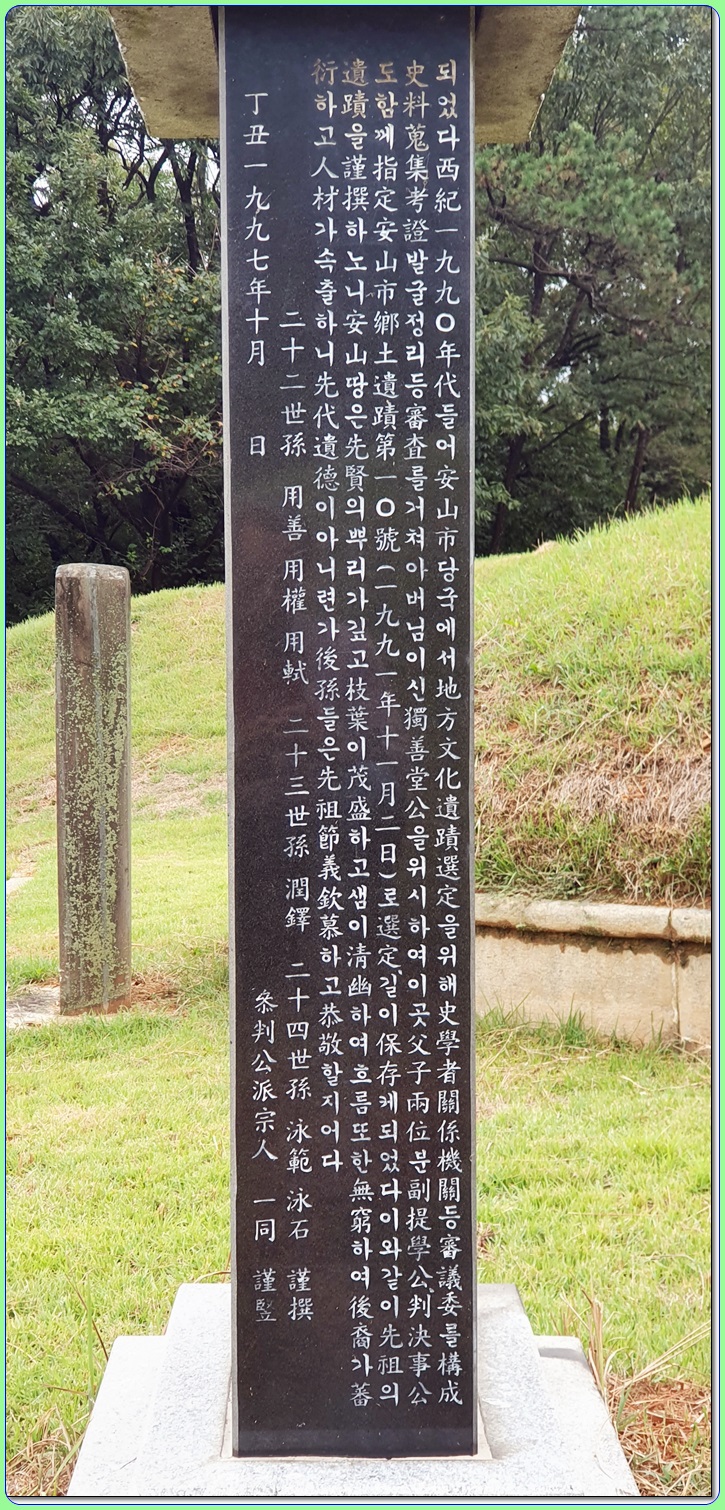 되었다西紀一九九0年代들어安山市당국에서地方文化遺蹟選定을위해史學者關係機關등審議委를構成
史料蒐集考證발굴정리등審査를거쳐아버님이신獨善堂公을위시하여이곳父子兩位분副提學公,判決事公
도함께指定安山市鄕土遺蹟第一0號(一九九一年十一月二日)로選定,길이保存케되었다이와같이先祖의
遺蹟을謹撰하노니安山땅은先賢의뿌리가깊고枝葉이茂盛하고샘이清幽하여흐름또한無窮하여後裔가蕃
衍하고人材가속출하니先代遺德이아니련가後孫들은先祖節義欽慕하고恭敬할지어다
二十二世孫 用善 用權 用軾 二十三世孫 潤鐸 二十四世孫 泳範 泳石 謹撰
丁丑一九九七年十月 日 叅判公派宗人 一同 謹竪